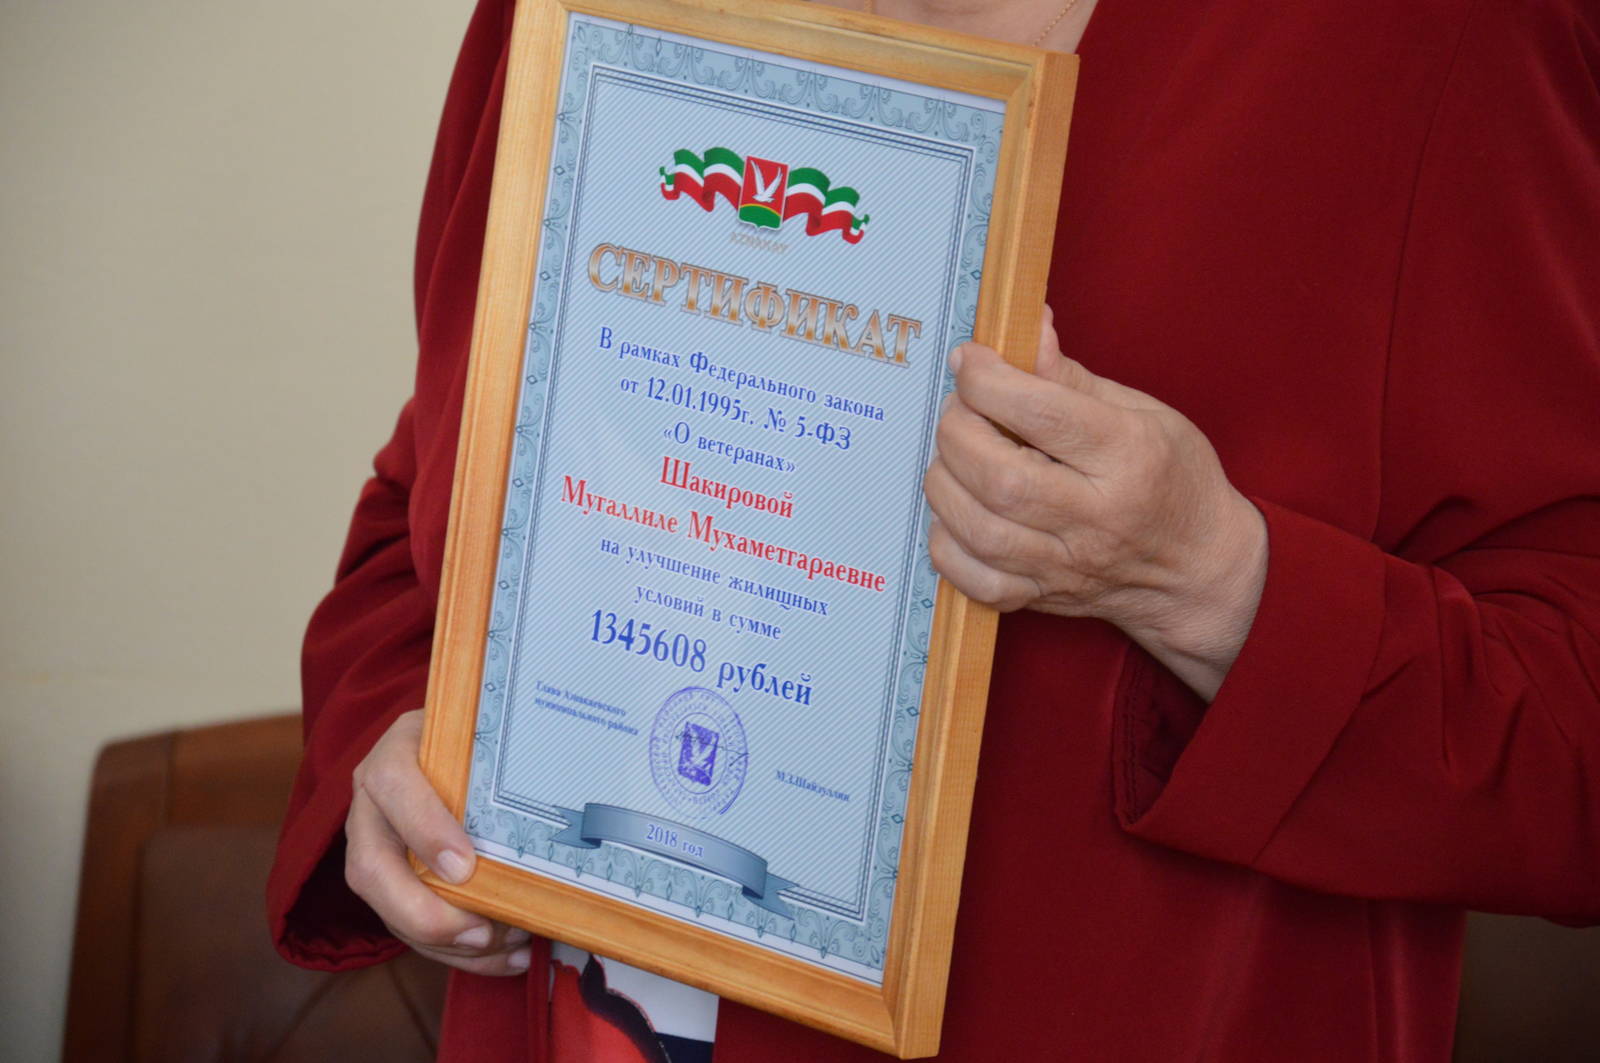 AZNAKAY
СЕРТИФИКАТ
В рамках Федерального закона
от 12.01.1995г. № 5-ФЗ
«О ветеранах»
Шакировой
Мугаллиле Мухаметгараевне
на улучшение жилищных
условий в сумме
1345608 рублей
Глава Азнакаевского
муниципального района
М.З.Шайдуллин
2018 год